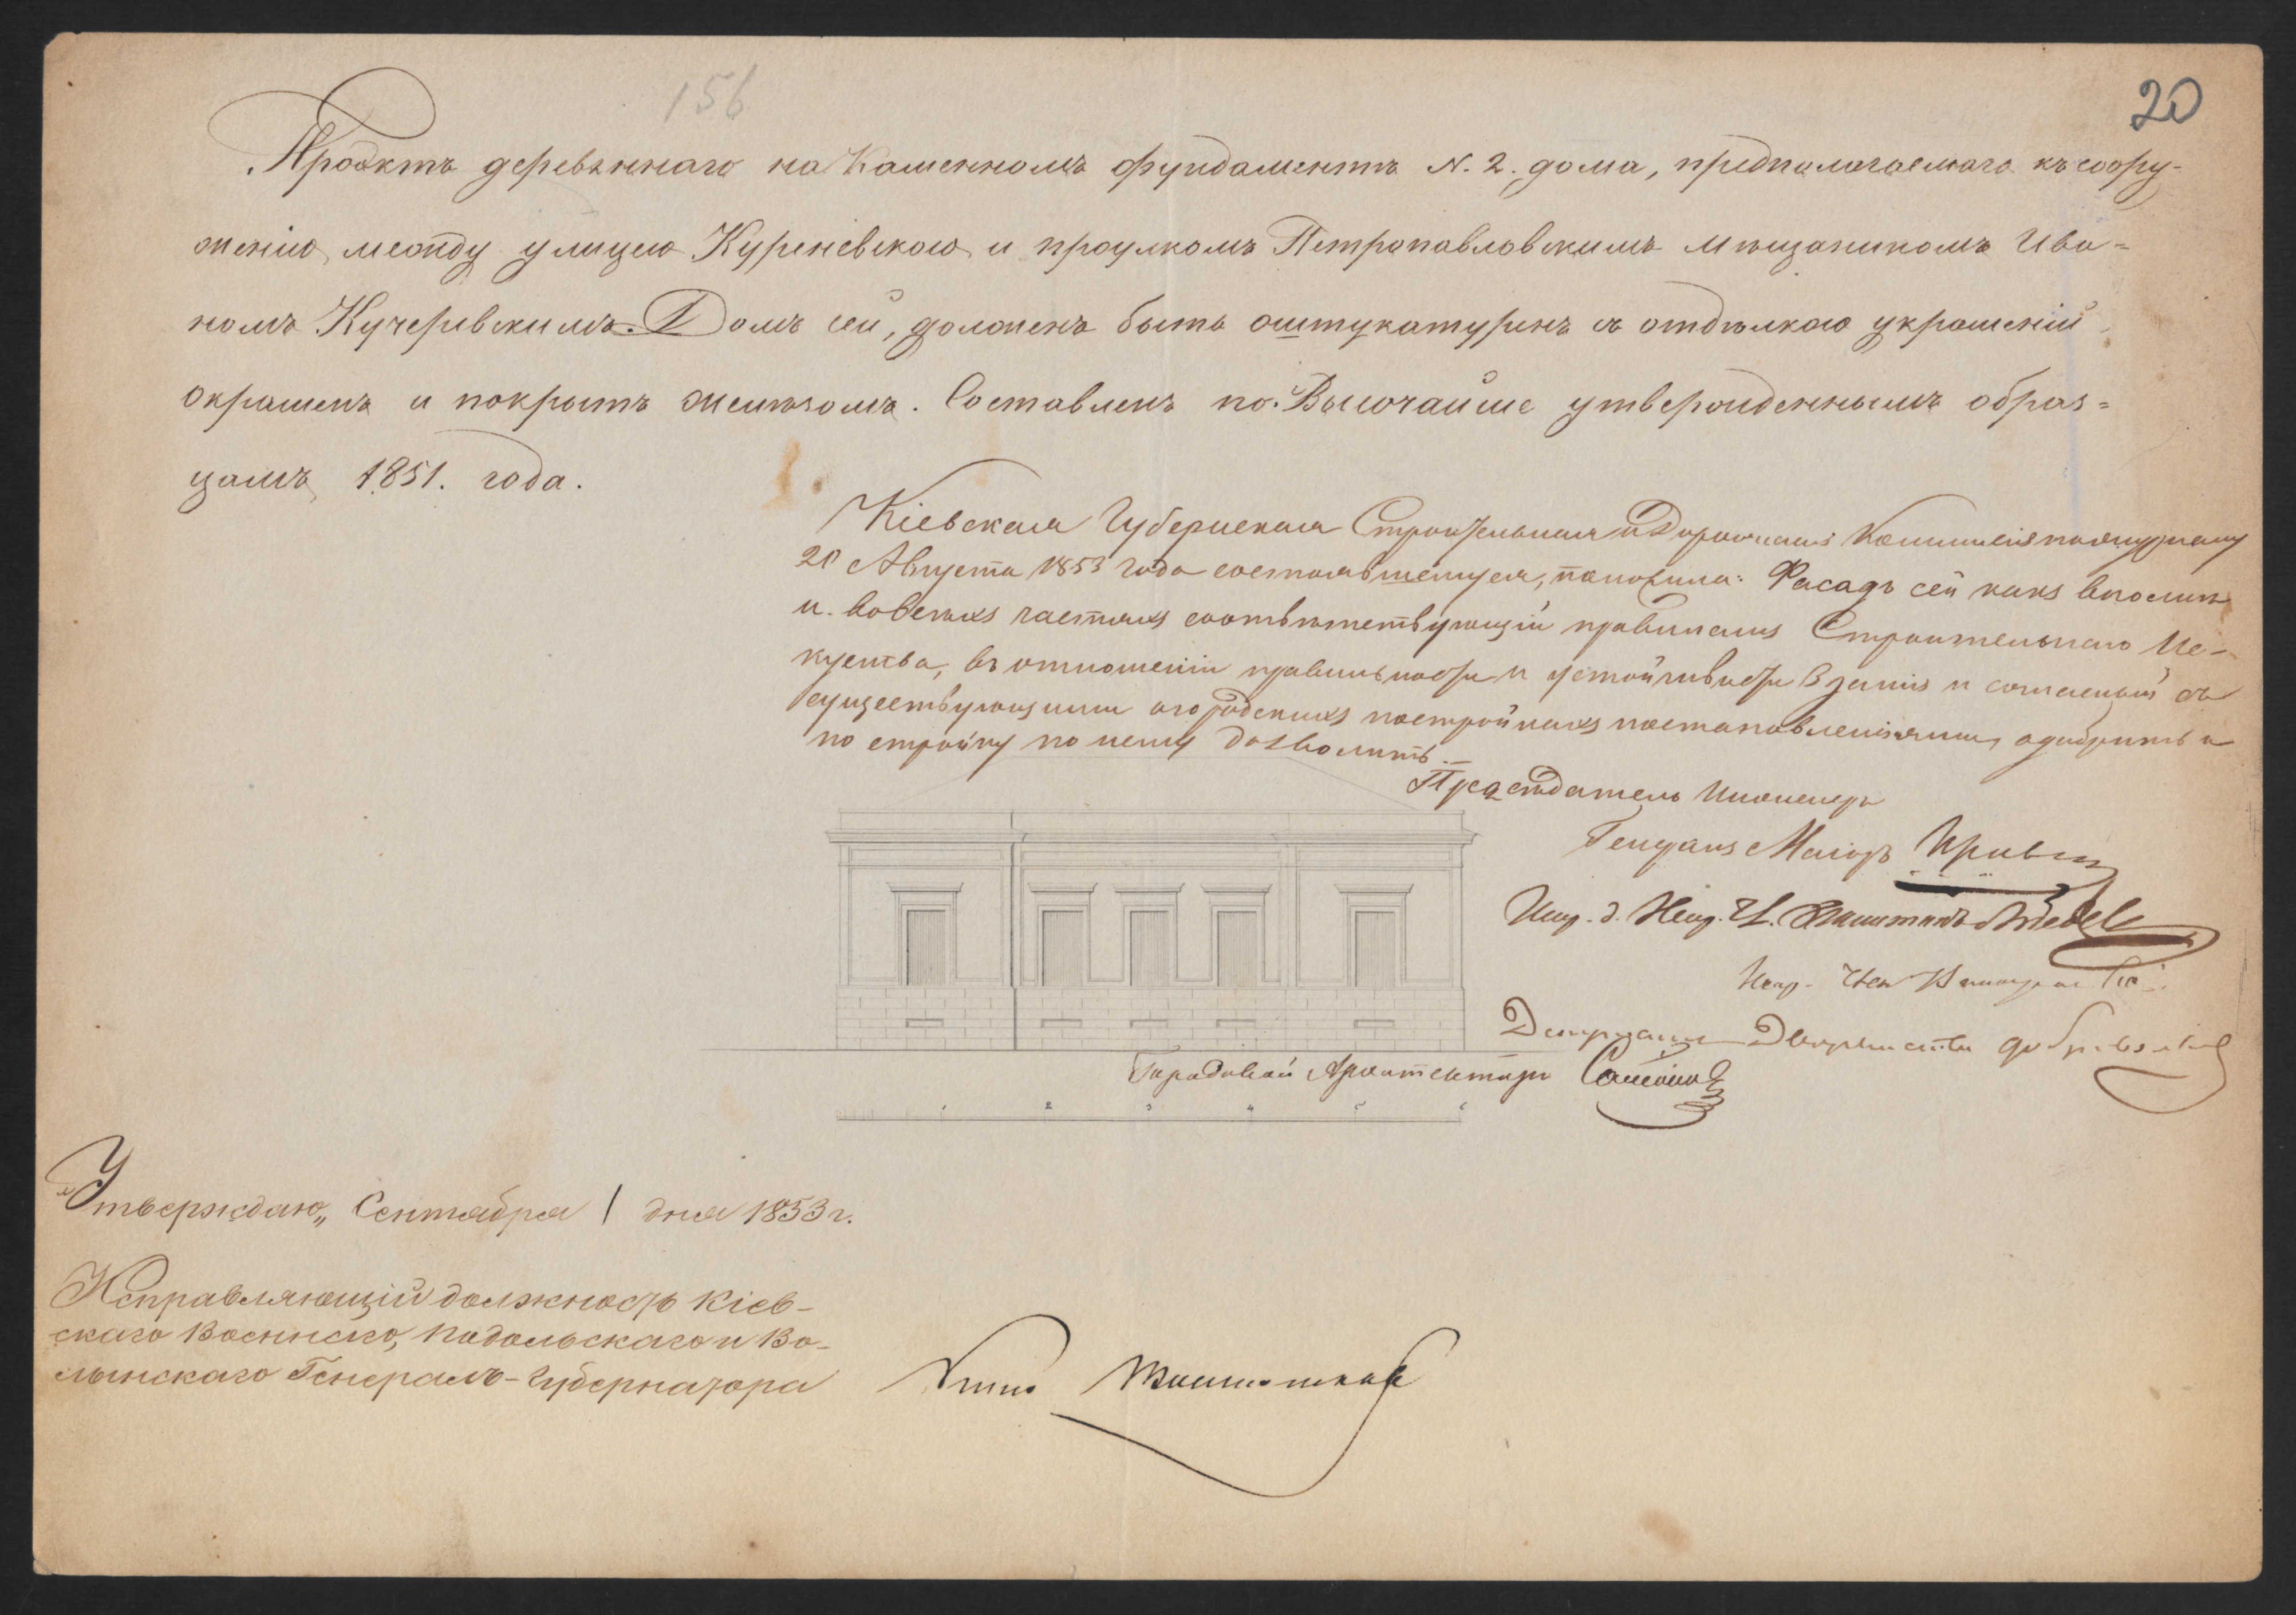 156
20
Проэктъ деревяннаго на Каменномъ фундаментѣ N. 2. дома, предполагаемаго къ соору-
женію, между улицею Куреневскою и проулкомъ Петропавловскимъ мѣщаниномъ Ива=
номъ Кучеревскимъ. Домъ сей, долженъ быть оштукатуренъ съ отдѣлкою украшеній
окрашенъ и покрытъ желѣзомъ. Составленъ по Высочайше утвержденнымъ образ=
цамъ 1851. года.
Кіевская Губернская Строительная и Дорожная Коммисія по журналу
20 Августа 1853 года состоявшемуся, положила: Фасадъ сей какъ вполнѣ
и во всѣхъ частяхъ соотвѣтствующій правиламъ Строительнаго Ис-
куства, въ отношеніи правильности и устойчивости зданія и согласный съ
существующими о городскихъ постройкахъ постановленіями, одобрить и
постройку по нему дозволить.
Предсѣдатель Инженеръ
Генералъ Маіоръ
Исп. д. Иск. Ч.
Исп. Чл.
Депутатъ Дворянства
Городовой Архитекторъ
1 2 3 4 5 6
„Утверждаю„ Сентября 1 дня 1853 г.
Исправляющій должность Кіев-
скаго Военнаго, Подольскаго и Во-
лынскаго Генералъ-Губернатора